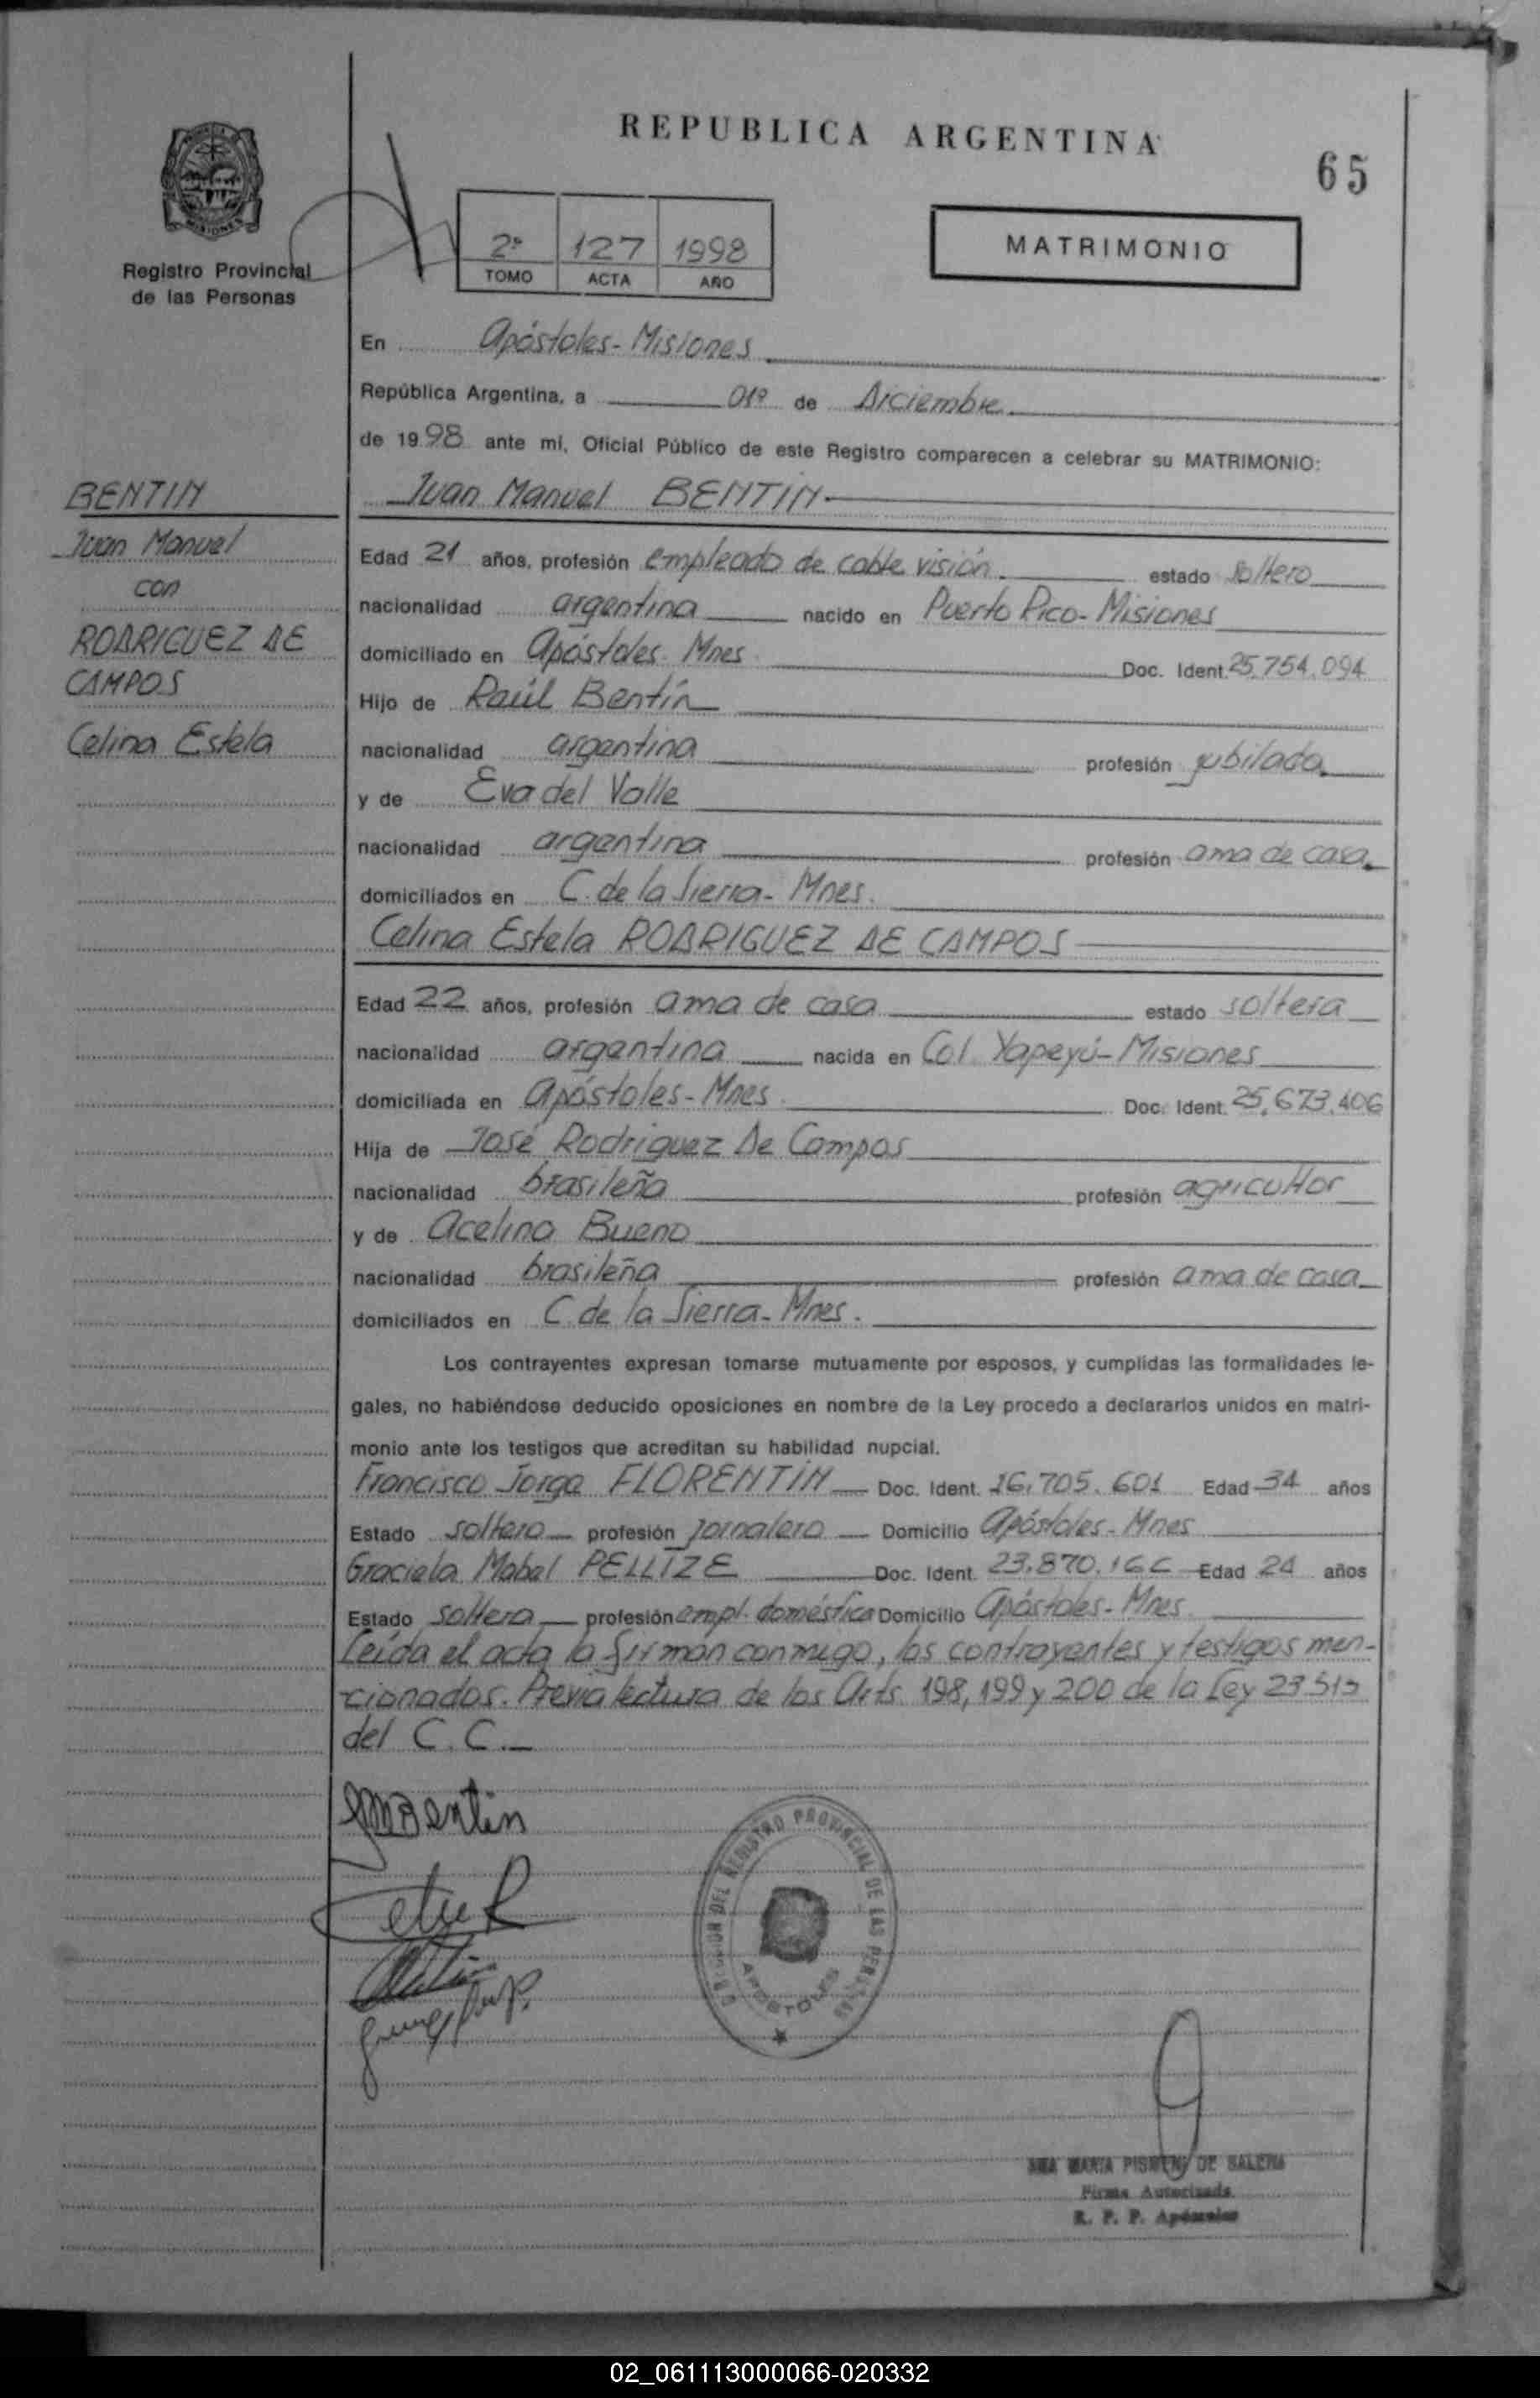 REPUBLICA ARGENTINA
65
MISIONES
Registro Provincial
de las Personas
2º 127 1998
TOMO ACTA AÑO
MATRIMONIO
En Apóstoles - Misiones
República Argentina, a 01º de Diciembre
de 19 98 ante mi, Oficial Público de este Registro comparecen a celebrar su MATRIMONIO:
BENTIN
Juan Manuel
con
RODRIGUEZ DE
CAMPOS
Celina Estela
Juan Manuel BENTIN
Edad 21 años, profesión empleado de cable visión estado soltero
nacionalidad argentina nacido en Puerto Rico - Misiones
domiciliado en Apóstoles. Mnes. Doc. Ident. 25.754.094
Hijo de Raúl Bentín
nacionalidad argentina profesión jubilado
y de Eva del Valle
nacionalidad argentina profesión ama de casa
domiciliados en C. de la Sierra - Mnes.
Celina Estela RODRIGUEZ DE CAMPOS
Edad 22 años, profesión ama de casa estado soltera
nacionalidad argentina nacida en Col. Yapeyú - Misiones
domiciliada en Apóstoles - Mnes. Doc. Ident. 25.673.406
Hija de José Rodriguez De Campos
nacionalidad brasileña profesión agricultor
y de Acelina Bueno
nacionalidad brasileña profesión ama de casa
domiciliados en C. de la Sierra - Mnes.
Los contrayentes expresan tomarse mutuamente por esposos, y cumplidas las formalidades le-
gales, no habiéndose deducido oposiciones en nombre de la Ley procedo a declararlos unidos en matri-
monio ante los testigos que acreditan su habilidad nupcial.
Francisco Jorge FLORENTÍN Doc. Ident. 16.705.601 Edad 34 años
Estado soltero profesión jornalero Domicilio Apóstoles - Mnes
Graciela Mabel PELLIZE Doc. Ident. 23.870.166 Edad 24 años
Estado soltera profesión empl. doméstica Domicilio Apóstoles - Mnes
Leída el acta la firman conmigo, los contrayentes y testigos men-
cionados. Previa lectura de los Arts. 198, 199 y 200 de la Ley 23515
del C. C.
JMBentin
DIRECCION DEL REGISTRO PROVINCIAL DE LAS PERSONAS
APOSTOLES
ANA MARIA DE
Firma Autorizada
R. P. P. Apóstoles
02_061113000066-020332